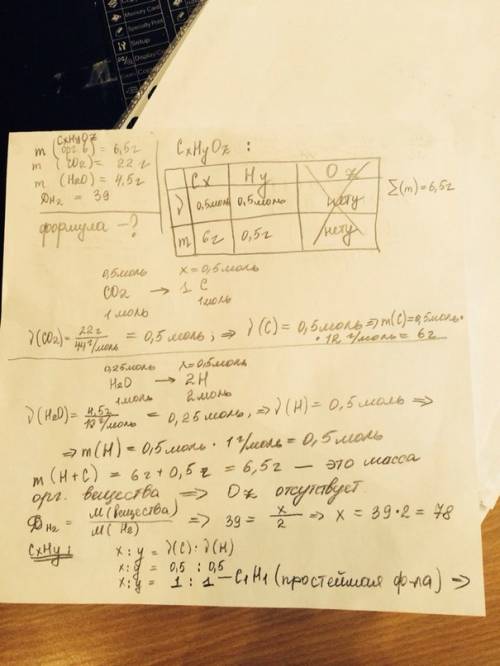 CxHyOz
m (орг.в) = 6,5г
m (CO2) = 22 г
m (H2O) = 4,5г
DH2 = 39
формула — ?
CxHyOz :
Cx Hy Oz
ν 0,5моль 0,5моль нету
m 6г 0,5г нету
Σ(m) = 6,5г
0,5моль x = 0,5моль
CO2 → 1 C
1 моль 1моль
ν(CO2) = 22г / 44 г/моль = 0,5 моль ; ⇒ ν(C) = 0,5моль ⇒ m(C)=0,5моль·
· 12 г/моль = 6г
0,25моль x = 0,5моль
H2O → 2H
1моль 2моль
ν(H2O) = 4,5г / 18 г/моль = 0,25 моль, ⇒ ν(H) = 0,5 моль ⇒
⇒ m(H) = 0,5моль · 1 г/моль = 0,5 моль
m (H+C) = 6г + 0,5 г = 6,5г — это масса
орг. вещества ⇒ Oz отсутствует
DH2 = M(вещества) / M(H2) ⇒ 39 = x / 2 ⇒ x = 39·2 = 78
CxHy: x : y = ν(C) : ν(H)
x : y = 0,5 : 0,5
x : y = 1 : 1 — C1H1 (простейшая ф-ла) ⇒